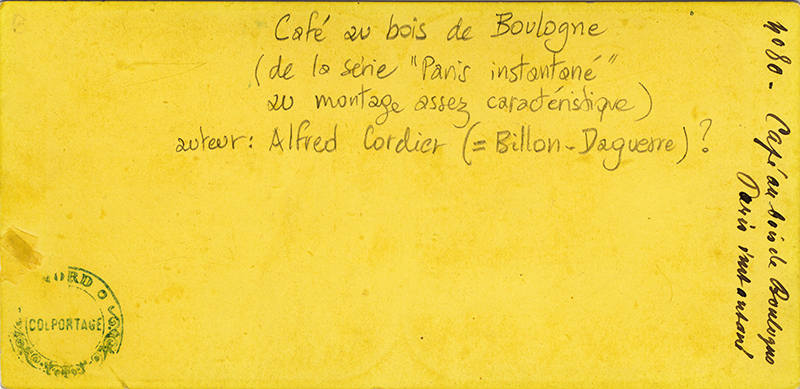 Café au bois de Boulogne
(de la série "Paris instantané"
au montage assez caractéristique)
auteur: Alfred Cordier (= Billon-Daguerre)?
No 80 - Café au bois de Boulogne
Paris instantané
COLPORTAGE